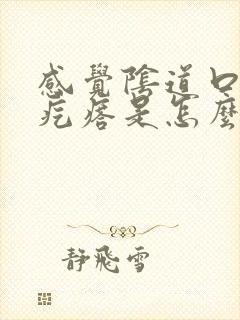 感覺陰道口
疙瘩是怎麼
靜飛雪